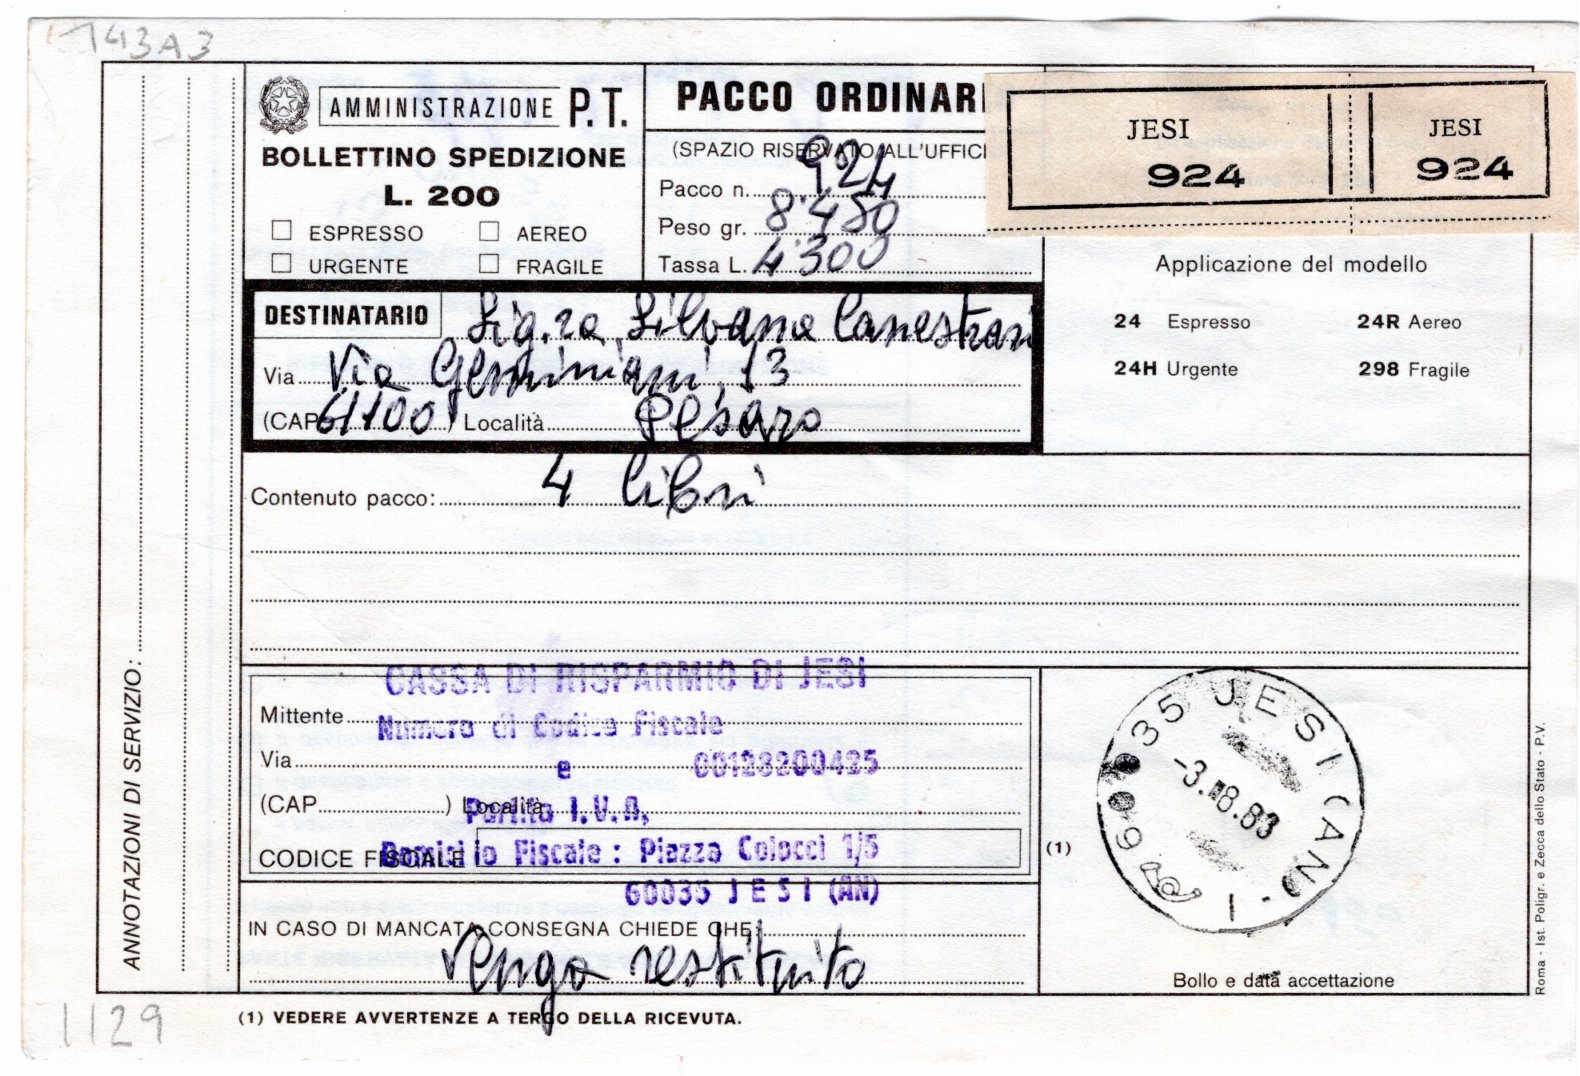 143A3
AMMINISTRAZIONE P.T.
BOLLETTINO SPEDIZIONE
L. 200
ESPRESSO AEREO
URGENTE FRAGILE
PACCO ORDINARI
(SPAZIO RISERVATO ALL'UFFICI
Pacco n. 924
Peso gr. 8.450
Tassa L. 4.300
JESI
924
JESI
924
Applicazione del modello
24 Espresso 24R Aereo
24H Urgente 298 Fragile
DESTINATARIO Sig.ra Silvana Canestrari
Via Via Geminiani, 13
(CAP 61100) Località Pesaro
Contenuto pacco: 4 libri
ANNOTAZIONI DI SERVIZIO:
CASSA DI RISPARMIO DI JESI
Mittente
Numero di Codice Fiscale
Via
e 00128200425
(CAP ) Località
Partita I.V.A.
CODICE FISCALE
Domicilio Fiscale : Piazza Colocci 1/5
60035 JESI (AN)
IN CASO DI MANCATA CONSEGNA CHIEDE CHE
Venga restituito
(1)
60035 JESI (AN) - 1
-3. 8.83
Bollo e data accettazione
Roma - Ist. Poligr. e Zecca dello Stato - P.V.
(1) VEDERE AVVERTENZE A TERGO DELLA RICEVUTA.
1129